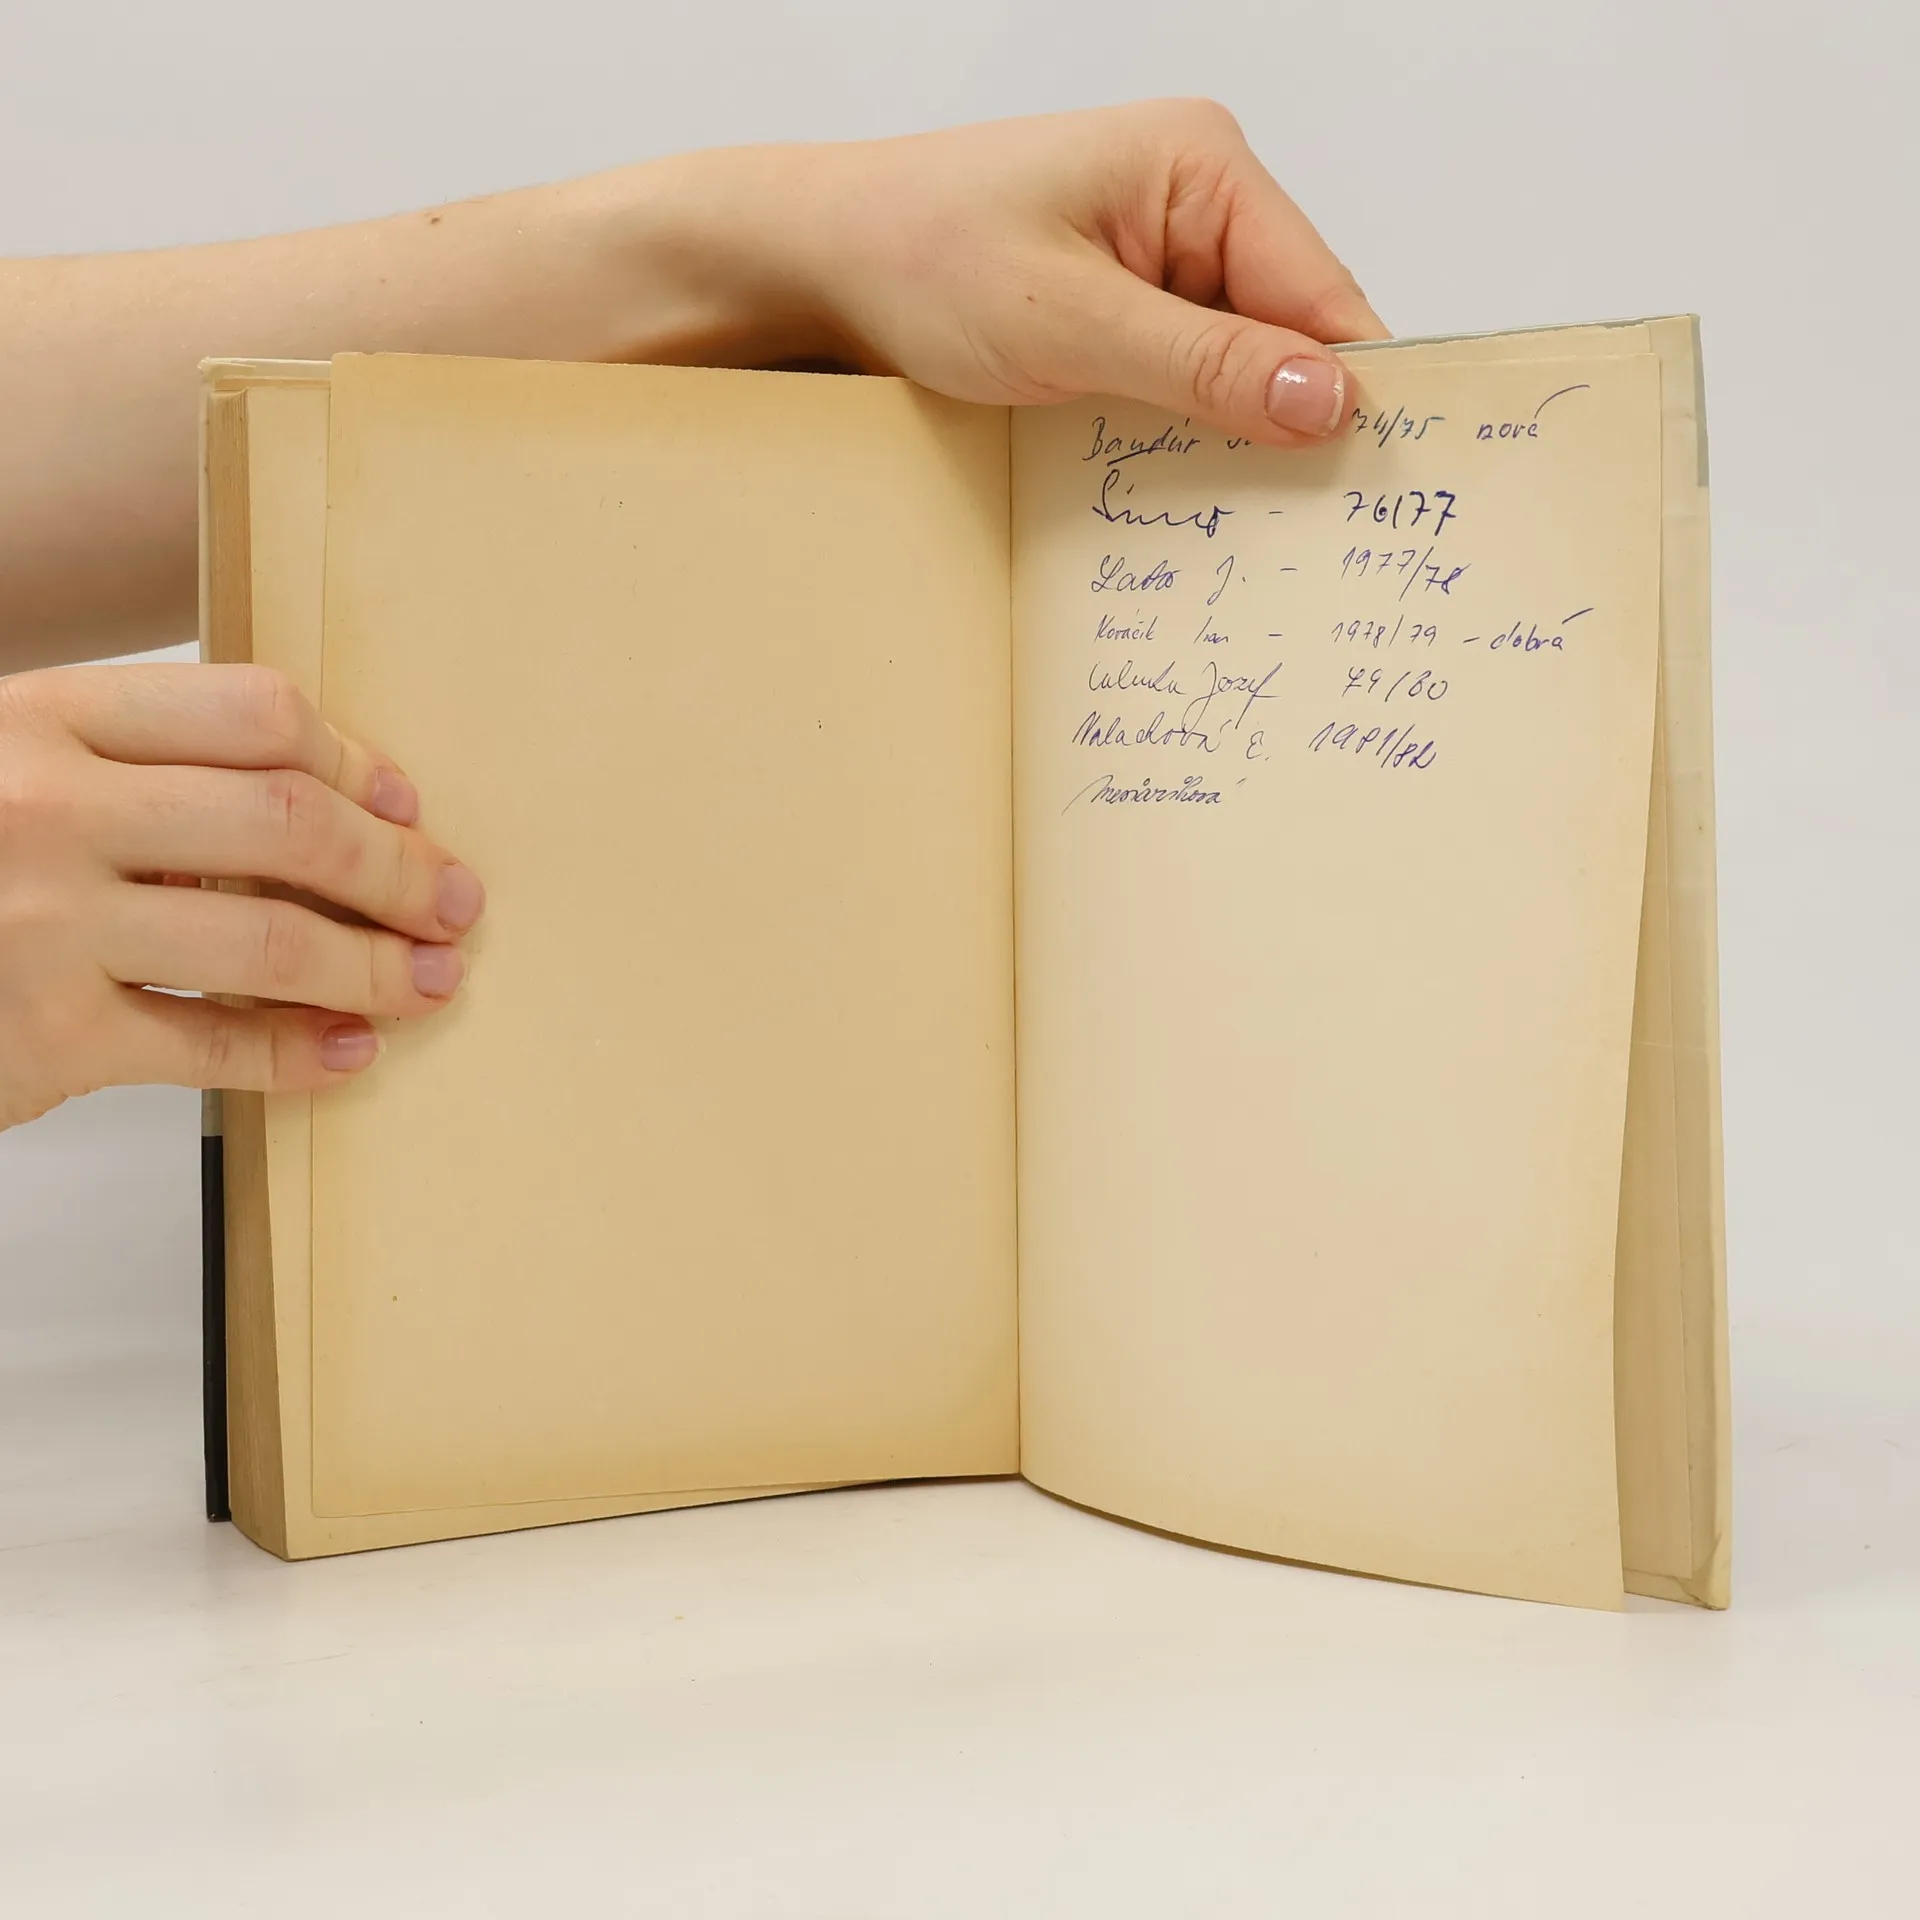 Bandúr 74/75 nová
76/77
J. - 1977/78
Kováčik Ivan - 1978/79 - dobrá
Jozef 79/80
Valachová E. 1981/82
Mesárošková